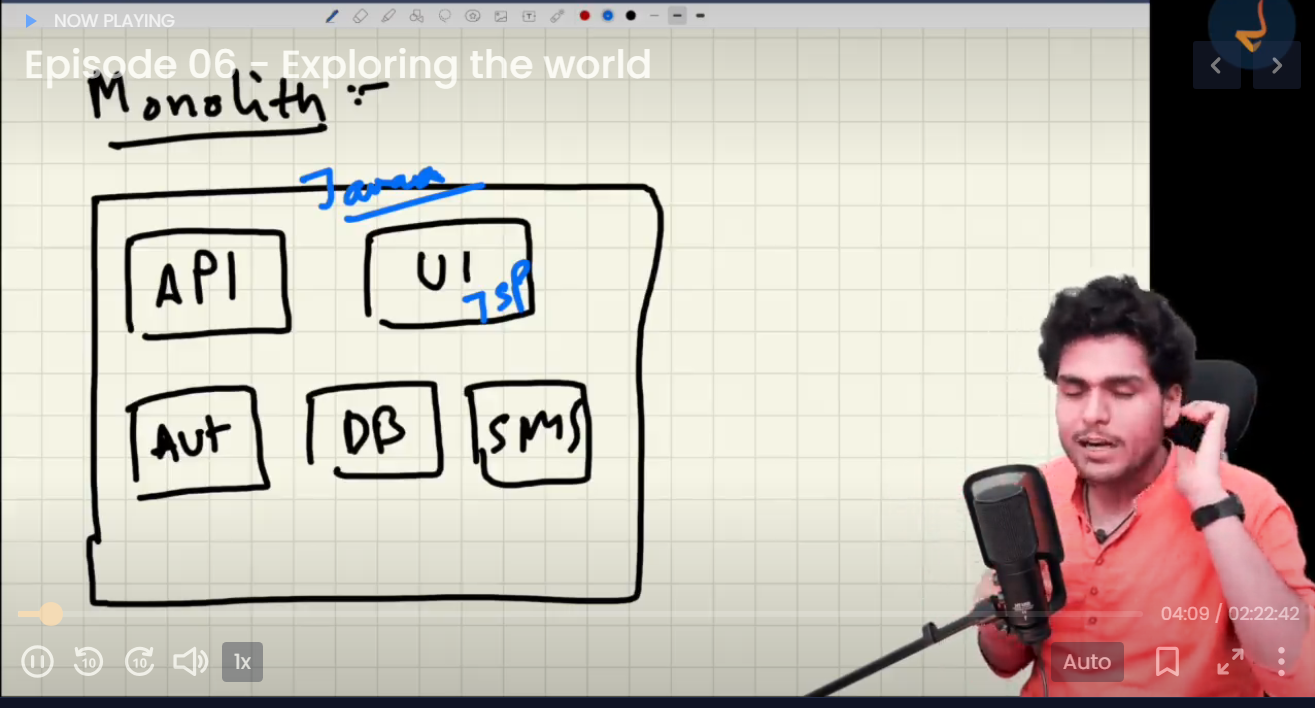 NOW PLAYING
Episode 06 - Exploring the world
Monolith :-
Java
API
UI
JSP
Aut
DB
SMS
04:09 / 02:22:42
10
10
1x
Auto